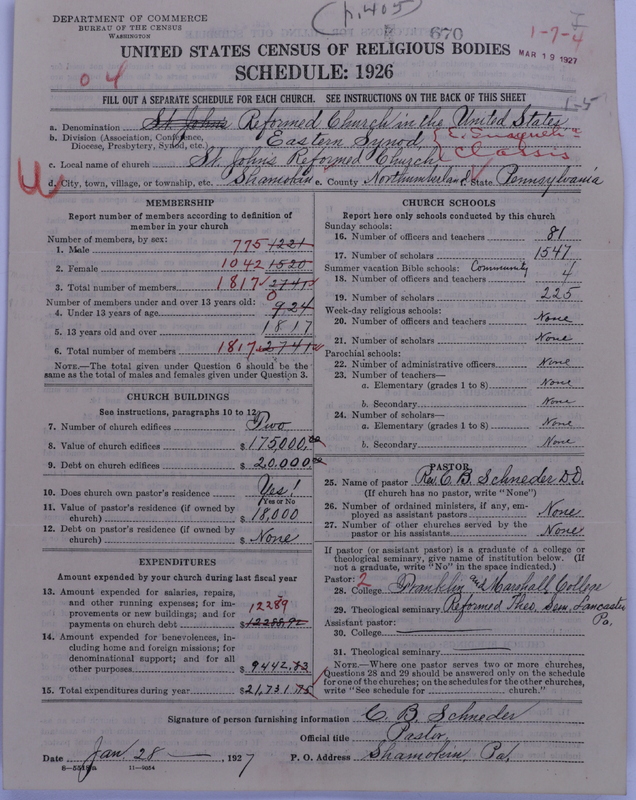 DEPARTMENT OF COMMERCE
BUREAU OF THE CENSUS
WASHINGTON
(p. 405)
670
1-7-4
MAR 19 1927
UNITED STATES CENSUS OF RELIGIOUS BODIES
SCHEDULE: 1926
04
FILL OUT A SEPARATE SCHEDULE FOR EACH CHURCH. SEE INSTRUCTIONS ON THE BACK OF THIS SHEET
a. Denomination St. Johns Reformed Church in the United States
b. Division (Association, Conference, Diocese, Presbytery, Synod, etc.) Eastern Synod,
Classis
c. Local name of church St. Johns Reformed Church
d. City, town, village, or township, etc. Shamokin e. County Northumberland f. State Pennsylvania
MEMBERSHIP
Report number of members according to definition of member in your church
Number of members, by sex:
1. Male 775 1221
2. Female 1042 1520
3. Total number of members 1817 2741
Number of members under and over 13 years old:
4. Under 13 years of age 0 924
5. 13 years old and over 1817
6. Total number of members 1817 2741
NOTE.—The total given under Question 6 should be the same as the total of males and females given under Question 3.
CHURCH BUILDINGS
See instructions, paragraphs 10 to 12
7. Number of church edifices Two
8. Value of church edifices $ 175,000.00
9. Debt on church edifices $ 20.000.00
10. Does church own pastor's residence Yes!
Yes or No
11. Value of pastor's residence (if owned by church) $ 18,000
12. Debt on pastor's residence (if owned by church) $ None
EXPENDITURES
Amount expended by your church during last fiscal year
13. Amount expended for salaries, repairs, and other running expenses; for improvements or new buildings; and for payments on church debt $ 12289 12288.92
14. Amount expended for benevolences, including home and foreign missions; for denominational support; and for all other purposes $ 9442.83
15. Total expenditures during year $ 21,731.75
CHURCH SCHOOLS
Report here only schools conducted by this church
Sunday schools:
16. Number of officers and teachers 81
17. Number of scholars 1547
Summer vacation Bible schools: Community
18. Number of officers and teachers 4
19. Number of scholars 225
Week-day religious schools:
20. Number of officers and teachers None
21. Number of scholars None
Parochial schools:
22. Number of administrative officers None
23. Number of teachers—
a. Elementary (grades 1 to 8) None
b. Secondary None
24. Number of scholars—
a. Elementary (grades 1 to 8) None
b. Secondary None
PASTOR
25. Name of pastor Rev. C. B. Schneder D.D.
(If church has no pastor, write "None")
26. Number of ordained ministers, if any, employed as assistant pastors None
27. Number of other churches served by the pastor or his assistants None
If pastor (or assistant pastor) is a graduate of a college or theological seminary, give name of institution below. (If not a graduate, write "No" in the space indicated.)
Pastor: 2
28. College Franklin and Marshall College
29. Theological seminary Reformed Theo. Sem. Lancaster Pa.
Assistant pastor:
30. College
31. Theological seminary
NOTE.—Where one pastor serves two or more churches, Questions 28 and 29 should be answered only on the schedule for one of the churches; on the schedules for the other churches, write "See schedule for church."
Signature of person furnishing information C. B. Schneder
Official title Pastor
Date Jan. 28 , 1927 P. O. Address Shamokin, Pa.
11—9054